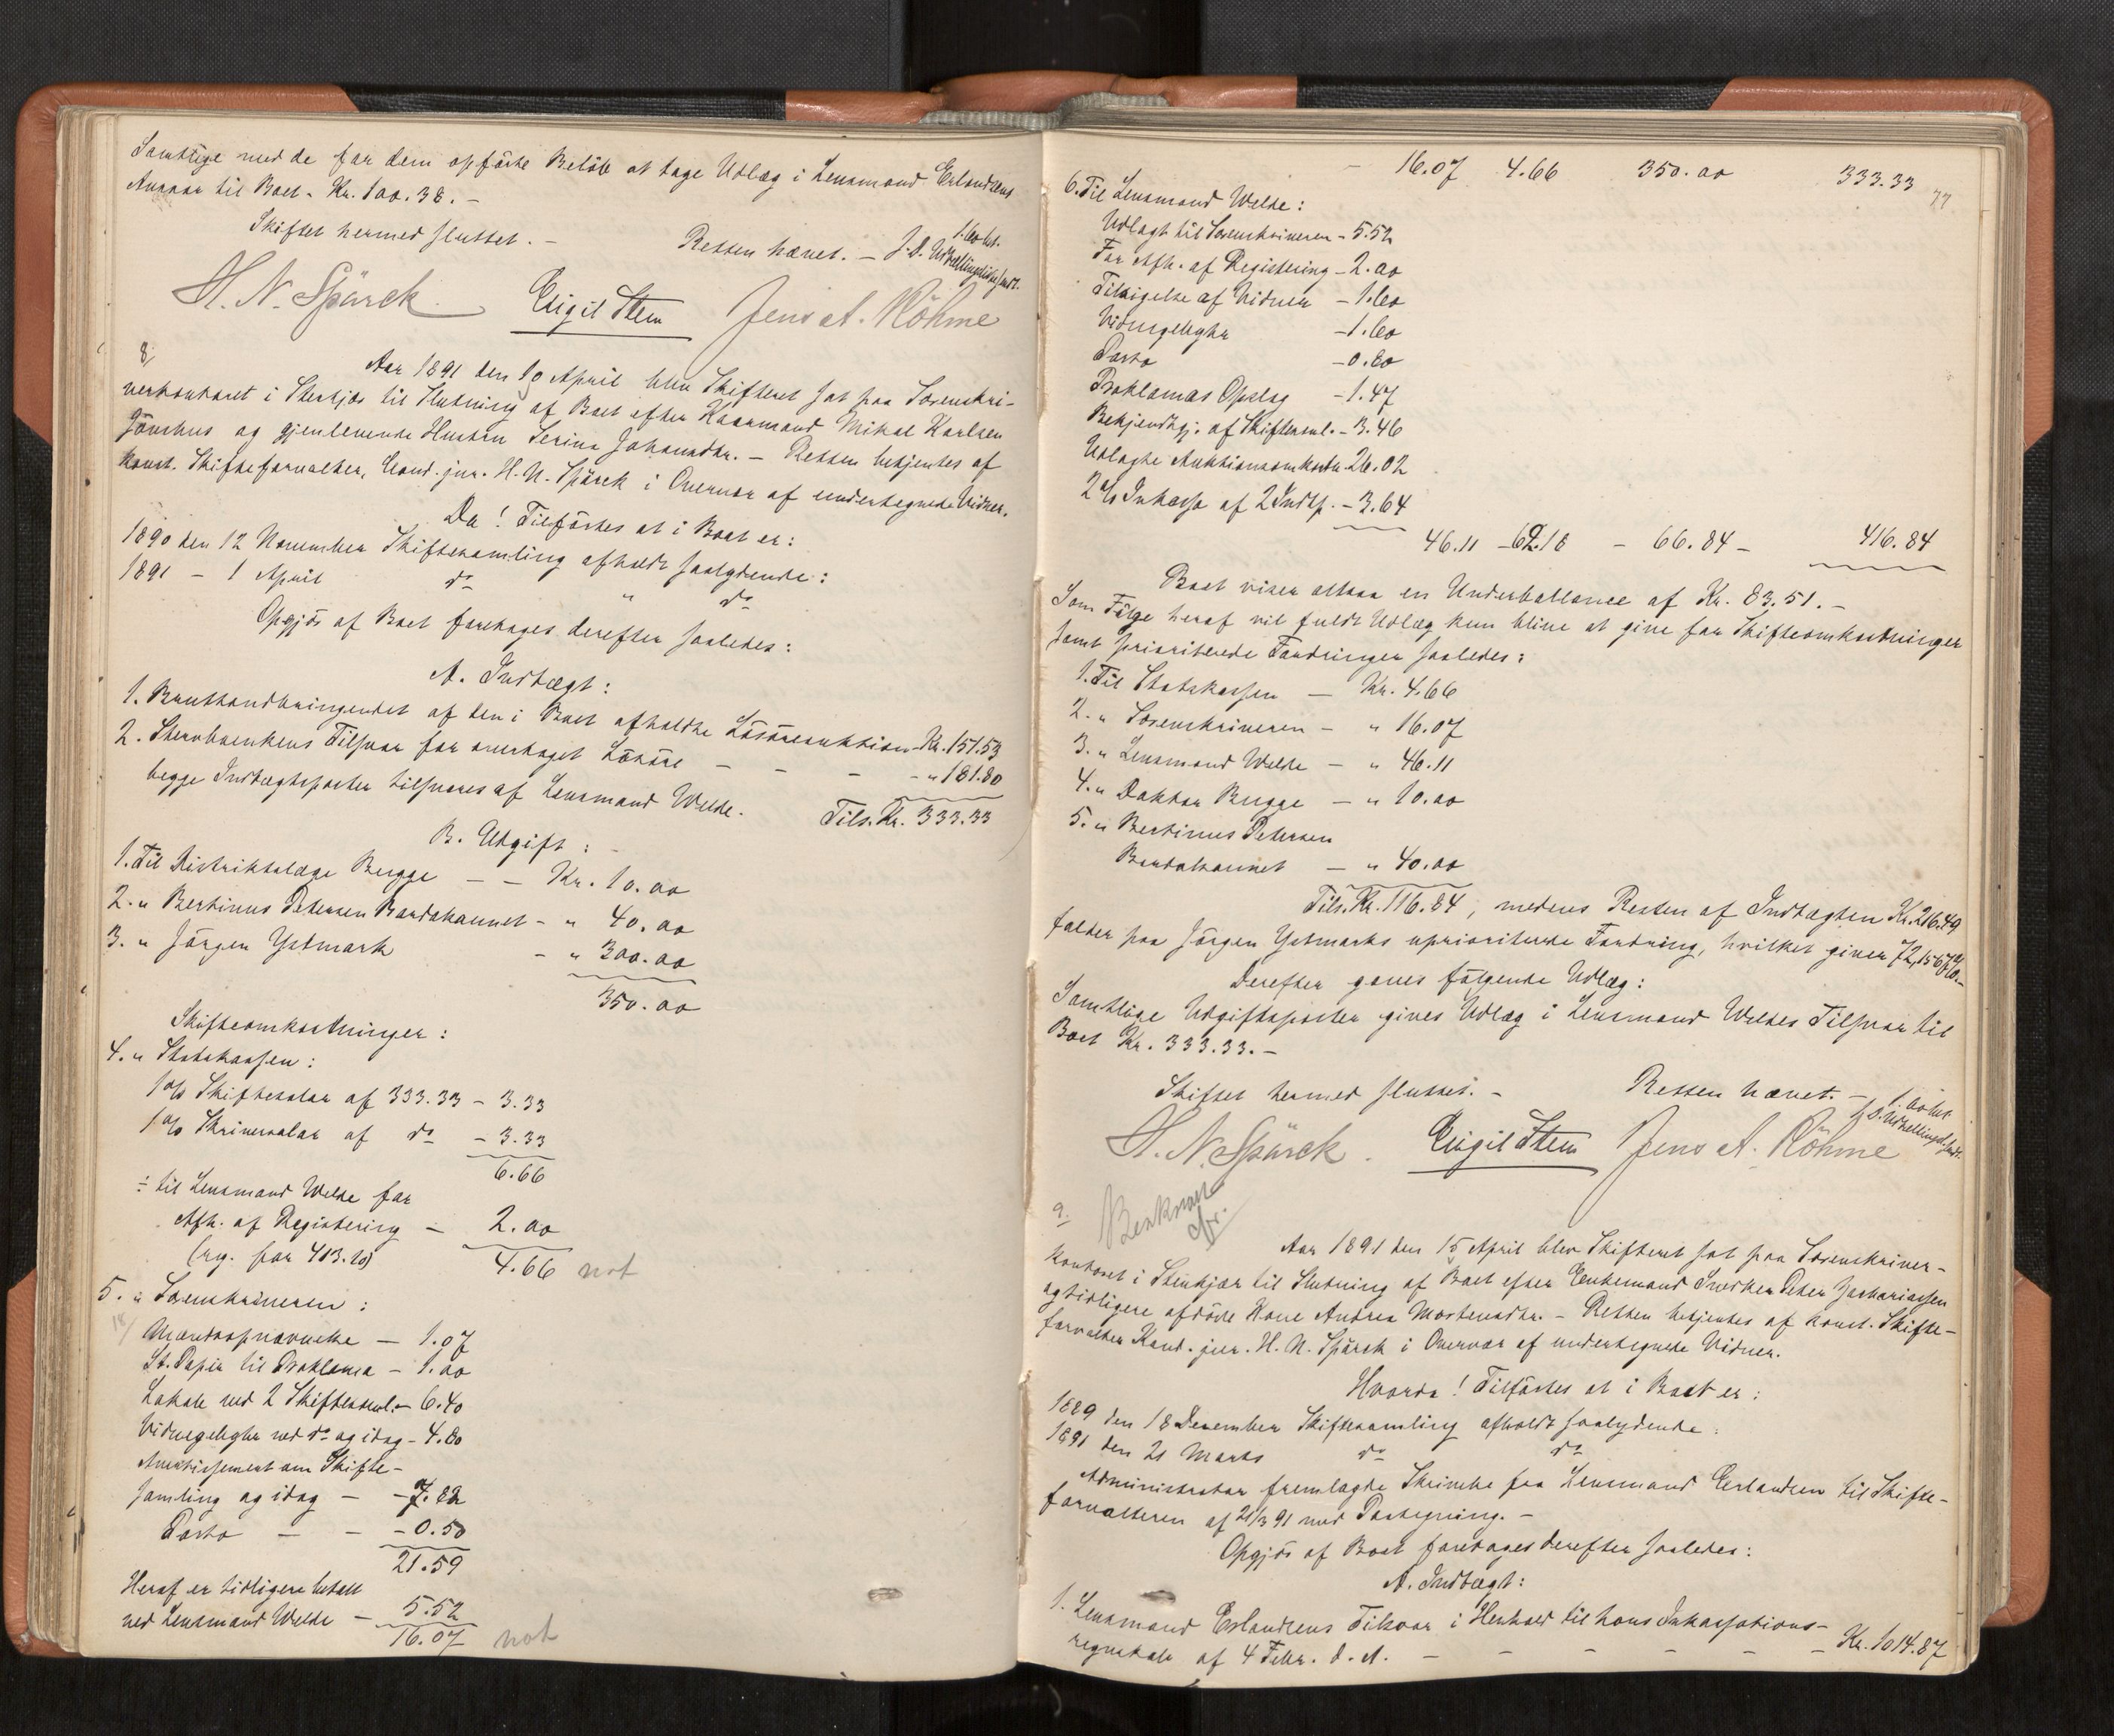 Samtlige med de for dem opførte Beløb at tage Udlæg i Lensmand Erlandsens
Ansvar til Boet - Kr. 100.38. -
Skiftet hermed sluttet. -
Retten hævet. -
H. N. Spärck Eugil Stem Jens A. Röhme
8/
Aar 1891 den 10 April blev Skifteret sat paa Sorenskri-
verkontoret i Stenkjær til Slutning af Boet efter Kaarmand Mikal Karlsen
og gjenlevende Hustru Serina Johansdtr. - Retten betjentes af
konst. Skifteforvalter, Cand. jur. H. N. Spärck i Overvær af undertegnede Vidner.
Da! Tilførtes at i Boet er:
1890 den 12 November Skiftesamling afholdt saalydende:
1891 - 1 April do " do
Opgjør af Boet foretages derefter saaledes:
A. Indtægt:
1. Bruttoudbringendet af den i Boet afholdte Løsøreauktion - Kr. 151.53
2. Stervboenkens Tilsvar for overtaget Løsøre - - - - " 181.80
begge Indtægtsposter tilsvares af Lensmand Welde. Tils. Kr. 333.33
B. Udgift:
1. Til Distriktslæge Bugge - - Kr. 10.00
2. " Bertinus Petersen Bardalsaunet - " 40.00
3. " Jörgen Ystmark - " 300.00
350.00
Skifteomkostninger:
4. " Statskassen:
1 % Skiftesalær af 333.33 - 3.33
1 % Skriversalær af do - 3.33
6.66
÷ til Lensmand Welde for
Afh. af Registering - 2.00
(reg. for 413.10)
4.66 not
5. " Sorenskriveren:
18/
Mandsopnævnelse - 1.07
St. Papir til Proklama - 1.00
Lokale ved 2 Skiftesaml. - 6.40
Vidnegebyhr ved do og idag - 4.80
Avertissement om Skifte-
samling og idag - - 7.82
Porto - - - 0.50
21.59
Heraf er tidligere betalt
ved Lensmand Welde - 5.52
16.07 not
- 16.07 4.66 350.00 333.33
77
6. Til Lensmand Welde:
Udlagt til Sorenskriveren - 5.52
For Afh. af Registering - 2.00
Tilsigelse af Vidner - 1.60
Vidnegebyhr - 1.60
Porto - 0.80
Proklamas Opslag - 1.47
Bekjendtgj. af Skiftesaml. - 3.46
Udlagte Auktionsomkostn. 26.02
2 % Inkasso af 2 Indtp. - 3.64
46.11 - 62.18 - 66.84 - 416.84
Boet viser altsaa en Underballance af Kr. 83.51. -
Som Følge heraf vil fuldt Udlæg kun blive at give for Skifteomkostninger
samt prioriterede Fordringer saaledes:
1. Til Statskassen - Kr. 4.66
2. " Sorenskriveren - " 16.07
3. " Lensmand Welde - " 46.11
4. " Doktor Bugge - " 10.00
5. " Bertinus Petersen
Bardalsaunet - " 40.00
Tils. Kr. 116.84, medens Resten af Indtægten Kr. 216.49
falder paa Jörgen Ystmarks uprioriterede Fordring, hvilket giver
Derefter gøres følgende Udlæg:
Samtlige Udgiftsposter gives Udlæg i Lensmand Weldes Tilsvar til
Boet Kr. 333.33. -
Skiftet hermed sluttet. -
Retten hævet. -
H. N. Spärck. Eugil Stem Jens A. Röhme
9.
Aar 1891 den 15 April blev Skifteret sat paa Sorenskriver-
kontoret i Stenkjær til Slutning af Boet efter Enkemand Peter Zachariassen
og tidligere afdøde Kone Andrea Mortensdtr. - Retten betjentes af konst. Skifte-
forvalter Kand. jur. H. N. Spärck i Overvær af undertegnede Vidner.
Hvorda! Tilførtes at i Boet er:
1889 den 18 December Skiftesamling afholdt saalydende:
1891 den 21 Marts do do
Administrator fremlagde Skrivelse fra Lensmand Erlandsen til Skifte-
forvalteren af 21/3 91 med Paategning. -
Opgjør af Boet foretages derefter saaledes:
A. Indtægt:
1. Lensmand Erlandsens Tilsvar i Henhold til hans Inkassations-
regnskab af 4 Febr. d. A. - - - - - - Kr. 1014.87